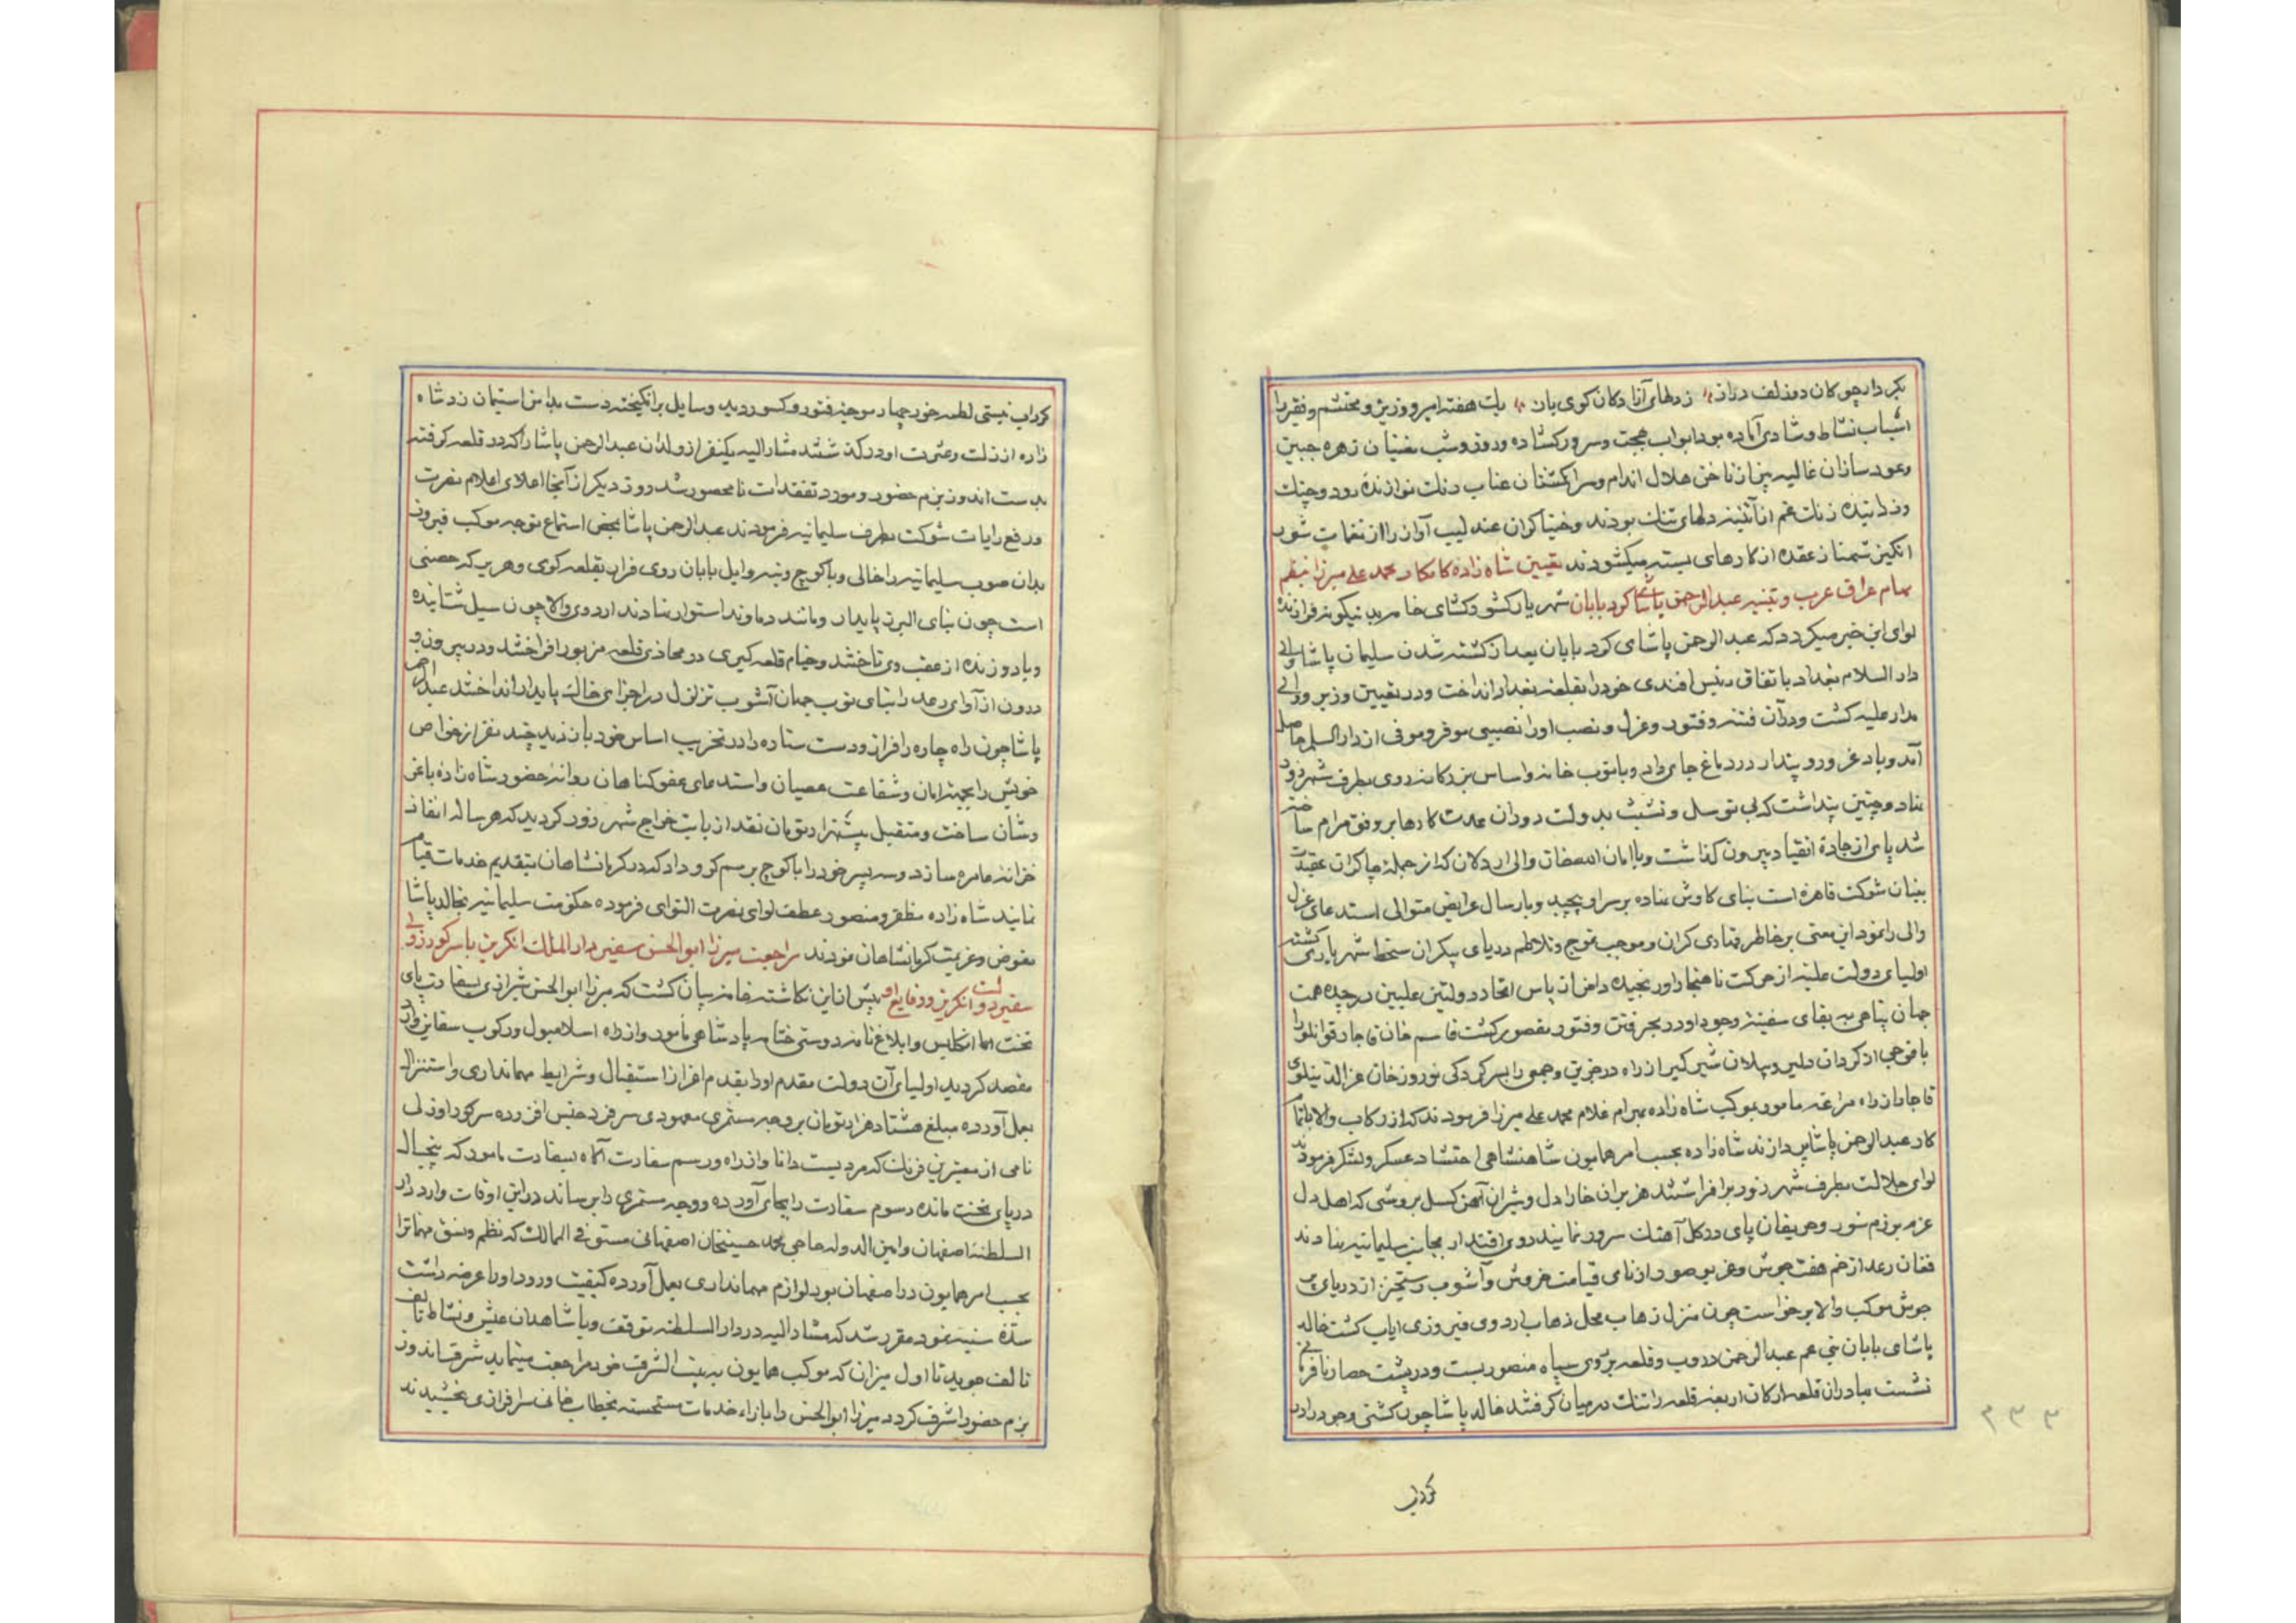 بکردار چوکان دو زلف دراز زدلهای آزادکان کوی باز یک هفته امیر و وزیر و محتشم و فقیر را
اسباب نشاط و شادی آماده بود ابواب بهجت و سرور کشاده و روز و شب مغنیان زهره جبین
و عود سازان غالیه بیز از ناخن هلال اندام و سرانکشتان عناب رنک نوازنده رود و چنک
و زداینده زنک غم از آئینه دلهای تنک بودند و خنیاکران عندلیب آواز را از نغمات شور
انکیز شهناز عقده از کارهای بسته میکشودند تعیین شاه زاده کامکار محمد علی میرزا بنظم
مهام عراق عرب و تنبیه عبدالرحمن پاشای کرد بابان شهریار کشورکشای خامه بدینکونه فرازنده
لوای این خبر میکردد که عبدالرحمن پاشای کرد بابان بعد از کشته شدن سلیمان پاشا والی
دار السلام بغداد باتفاق رئیس افندی خود را بقلعه بغداد انداخت و در تعیین وزیر و والی
مدار علیه کشت و در آن فتنه و فتور و عزل و نصب او را نصیبی موفر و موفی از دار السلام حاصل
آمد و باد غرور و پندار در دماغ جای داد و با توپ خانه و اساس بزرکانه روی بطرف شهر زور
نهاد و چنین پنداشت که بی توسل و تشبث بدولت دوران عدت کارها بر وفق مرام ساخته
شد پای از جاده انقیاد بیرون کذاشت و با امان الله خان والی اردلان که از جمله چاکران عقیدت
بنیان شوکت قاهره است بنای کاوش نهاده بر سر او پیچید و بارسال عرایض متوالی استدعای عزل
والی را نمود این معنی بر خاطر قا آن کران و موجب تموج و تلاطم دریای بیکران سخط شهریاری کشته
اولیای دولت علیه از حرکت ناهنجار او رنجیده دامن از پاس اتحاد دولتین علیین در چیده همت
جهان پناهی به بقای سفینه وجود او در بحر فتن و فتور مقصور کشت قاسم خان قاجار قوانلو را
با فوجی از کردان دلیر و یلان شیر کیر از راه در جزین و جمعی را بسر کردکی نوروز خان عز الدینلوی
قاجار از راه مراغه مامور بموکب شاه زاده بهرام غلام محمد علی میرزا فرمودند که از رکاب والا باتمام
کار عبدالرحمن پاشا پردازند شاه زاده بحسب امر همایون شاهنشاهی احتشاد عسکر و لشکر فرمودند
لوای جلالت بطرف شهر زور بر افراشتند هزبران خارا دل و شیران آهن کسل بروشی که اهل دل
عزم بزم سور و حریفان پای در کل آهنک سرور نمایند روی اقتدار بجانب سلیمانیه نهادند
فغان رعد از خم هفت جوش و غریو صور از نای قیامت خروش و آشوب رستخیز از دریای پر
جوش موکب والا برخواست چون منزل زهاب محل ذهاب اردوی فیروزی ایاب کشت خالد
پاشای بابان بنی عم عبدالرحمن دروب و قلعه بر روی سپاه منصور بست و در پشت حصار نافرمانی
نشست بهادران قلعه ارکان اربعه قلعه را تنک در میان کرفتند خالد پاشا چون کشتی وجود را در
کرداب
۲۳۳
کرداب نیستی لطمه خور چهار موجه فتور و کسور دید وسایل برانکیخته دست بدامن استیمان زد شاه
زاده از زلت و عثرت او درکذشتند مشار الیه یکنفر از ولدان عبدالرحمن پاشا را که در قلعه کرفته
بدست اندوز بزم حضور و مورد تفقدات نامحصور شد روز دیکر از آنجا اعلای اعلام نصرت
و رفع رایات شوکت بطرف سلیمانیه فرمودند عبدالرحمن پاشا بمحض استماع توجه موکب فیروز
بدان صوب سلیمانیه را خالی و با کوچ و بنه و ایل بابان روی فرار بقلعه کوی و حریر که حصنی
است چون بنای البرز پایدار و مانند دماوند استوار نهادند اردوی والا چون سیل شتابنده
و باد وزنده از عقب وی تاختند و خیام قلعه کیری در محاذی قلعه مزبور افراختند و در بیرون و
درون از آوای رعد راتبای توپ جهان آشوب تزلزل در اجزای خاک پایدار انداختند عبدالرحمن
پاشا چون راه چاره را فراز و دست ستاده را در تخریب اساس خود باز دید چند نفر از خواص
خویش را بجهة امان و شفاعت عصیان و استدعای عفو کناهان روانه حضور شاه زاده با عز
و شان ساخت و متقبل بیست هزار تومان نقد از بابت خراج شهر زور کردید که هر ساله انفاذ
خزانه عامره سازد و سه پسر خود را با کوچ برسم کرو داد که در کرمانشاهان بتقدیم خدمات قیام
نمایند شاه زاده مظفر و منصور عطف لوای نصرت التوای فرموده حکومت سلیمانیه بخالد پاشا
مفوض و عزیمت کرمانشاهان نمودند مراجعت میرزا ابوالحسن سفیر دار الملک انکریز با سر کور اوزلی
سفیر دولت انکریز و وقایع او پس از این نکاشته خامه بیان کشت که میرزا ابوالحسن شیرازی بسفارت پای
تخت امام انکلیس و ابلاغ نامه دوستی ختامه پادشاهی مامور و از راه اسلامبول و رکوب سفاین وارد
مقصد کردید اولیای آن دولت مقدم او را بقدم اعزاز استقبال و شرایط مهمانداری و استنزال
بعمل آورده مبلغ هشتاد هزار تومان بر وجه مستمری معهودی سر فرد جنیس افزوده سر کور اوزلی
نامی از معتبرین فرنک که مردیست دانا و از راه و رسم سفارت آکاه بسفارت مامور که پنجسال
در پای تخت مانده رسوم سفارت را بجای آورده و وجه مستمری را برساند در این اوقات وارد دار
السلطنه اصفهان و امین الدوله حاجی محمد حسینخان اصفهانی مستوفی الممالک که نظم و نسق مهمات را
بحسب امر همایون در اصفهان بود لوازم مهمانداری بعمل آورده کیفیت ورود او را عرضه داشت
سدّه سنیه نمود مقرر شد که مشار الیه در دار السلطنه توقف و با شاهدان عیش و نشاط تالف
تالف جوید تا اول میزان که موکب همایون به بیت الشرف خود مراجعت مینماید شرف اندوز
بزم حضور اشرف کردد میرزا ابوالحسن را بازاء خدمات مستحسنه بخطاب خانی سرافرازی بخشیدند